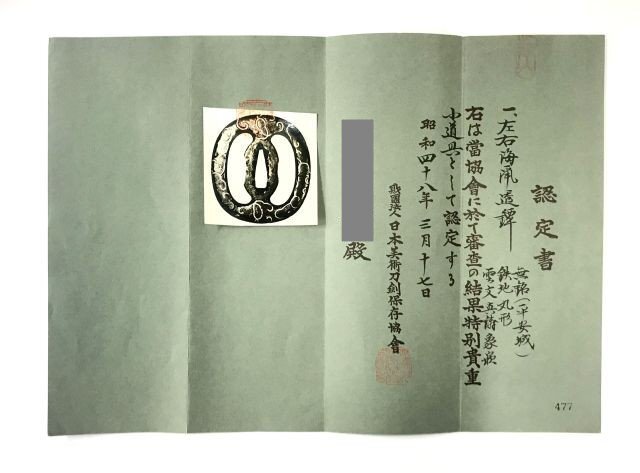 認定書
一、左右海鼠透鐔
無銘(平安城)
鉄地丸形
雲文真鍮象嵌
右は當協會に於て審査の結果特別貴重
小道具として認定する
昭和四十八年三月十七日
財團法人日本美術刀劍保存協會
殿
477